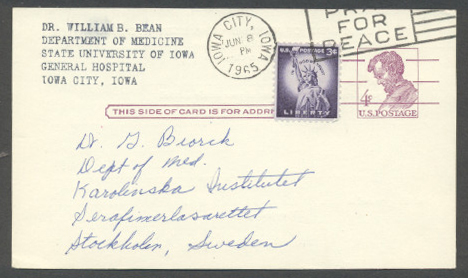 DR. WILLIAM B. BEAN
DEPARTMENT OF MEDICINE
STATE UNIVERSITY OF IOWA
GENERAL HOSPITAL
IOWA CITY, IOWA
IOWA CITY, IOWA
JUN 8
PM
1965
PRAY
FOR
PEACE
U.S. POSTAGE 3¢
LIBERTY
4¢
U.S. POSTAGE
THIS SIDE OF CARD IS FOR ADDRE
Dr. G. Biorck
Dept of Med.
Karolinska Institutet
Serafimerlasarettet
Stockholm, Sweden